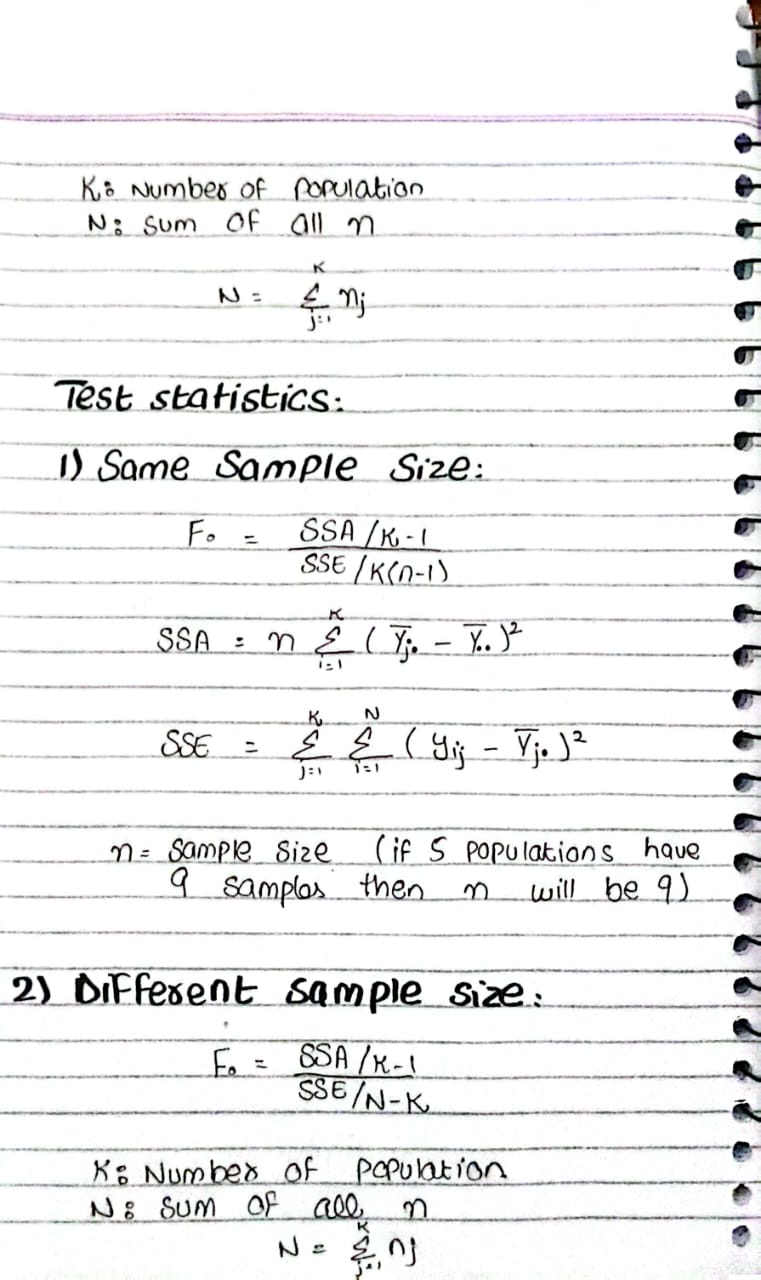 K: Number of population
N: Sum of all n
N = K Σ j=1 nj
Test statistics:
1) Same Sample Size:
F₀ = SSA/K-1
SSE/K(n-1)
SSA = n K Σ i=1 ( Ȳj. - Ȳ.. )²
SSE = K Σ j=1 N Σ i=1 ( yij - Ȳj. )²
n = Sample Size (if 5 populations have
9 samples then n will be 9)
2) Different Sample size:
F₀ = SSA/K-1
SSE/N-K
K: Number of population
N: Sum of all n
N = K Σ j=1 nj